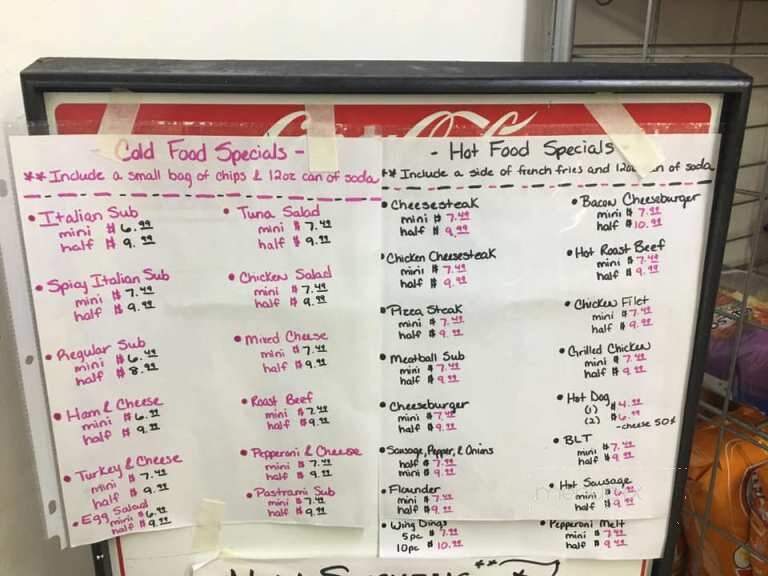 Cold Food Specials -
** Include a small bag of chips & 12oz can of soda
• Italian Sub
mini $6.99
half $9.99
• Spicy Italian Sub
mini $7.49
half $9.99
• Regular Sub
mini $6.49
half $8.99
• Ham & Cheese
mini $6.99
half $9.99
• Turkey & Cheese
mini $7.49
half $9.99
• Egg Salad
mini $6.99
half $9.99
• Tuna Salad
mini $7.49
half $9.99
• Chicken Salad
mini $7.49
half $9.99
• Mixed Cheese
mini $7.49
half $9.99
• Roast Beef
mini $7.49
half $9.99
• Pepperoni & Cheese
mini $7.49
half $9.99
• Pastrami Sub
mini $7.49
half $9.99
- Hot Food Specials
** Include a side of french fries and 12oz can of soda
• Cheesesteak
mini $7.49
half $9.99
• Chicken Cheesesteak
mini $7.49
half $9.99
• Pizza Steak
mini $7.49
half $9.99
• Meatball Sub
mini $7.49
half $9.99
• Cheeseburger
mini $7.49
half $9.99
• Sausage, Pepper, & Onions
half $7.99
mini $9.99
• Flounder
mini $7.49
half $9.99
• Wing Dings
5pc $7.99
10pc $10.99
• Bacon Cheeseburger
mini $7.99
half $10.99
• Hot Roast Beef
mini $7.49
half $9.99
• Chicken Filet
mini $7.49
half $9.99
• Grilled Chicken
mini $7.49
half $9.99
• Hot Dog
(1) $4.99
(2) $6.99
- cheese 50¢
• BLT
mini $7.49
half $9.99
• Hot Sausage
mini $6.99
half $9.99
• Pepperoni Melt
mini $7.49
half $9.99